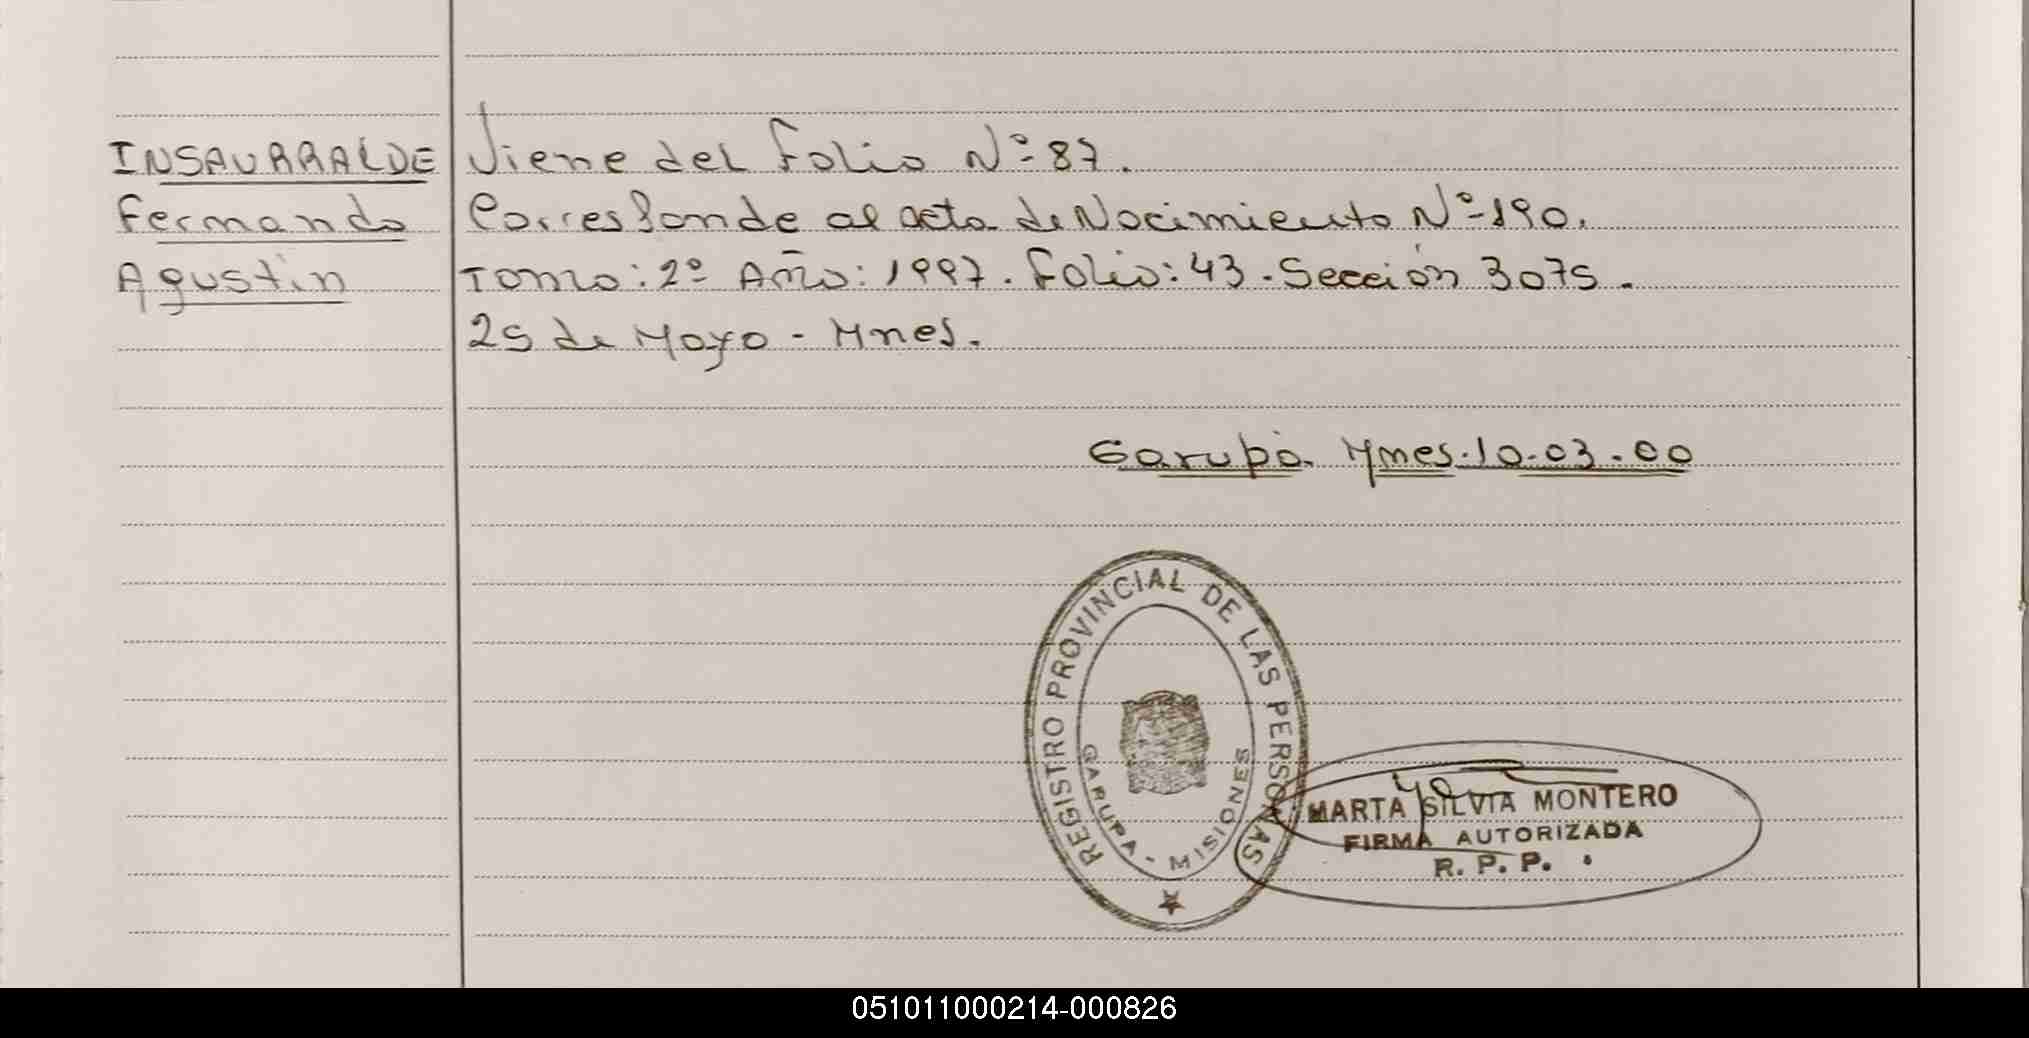 INSAURRALDE Viene del folio Nº 87.
Fernando Corresponde al acta de Nacimiento Nº 190.
Agustin Tomo: 2º Año: 1997. Folio: 43. Sección 3075.
25 de Mayo - Mnes.
Garupá Mnes. 10.03.00
REGISTRO PROVINCIAL DE LAS PERSONAS
GARUPA - MISIONES
MARTA SILVIA MONTERO
FIRMA AUTORIZADA
R. P. P.
051011000214-000826